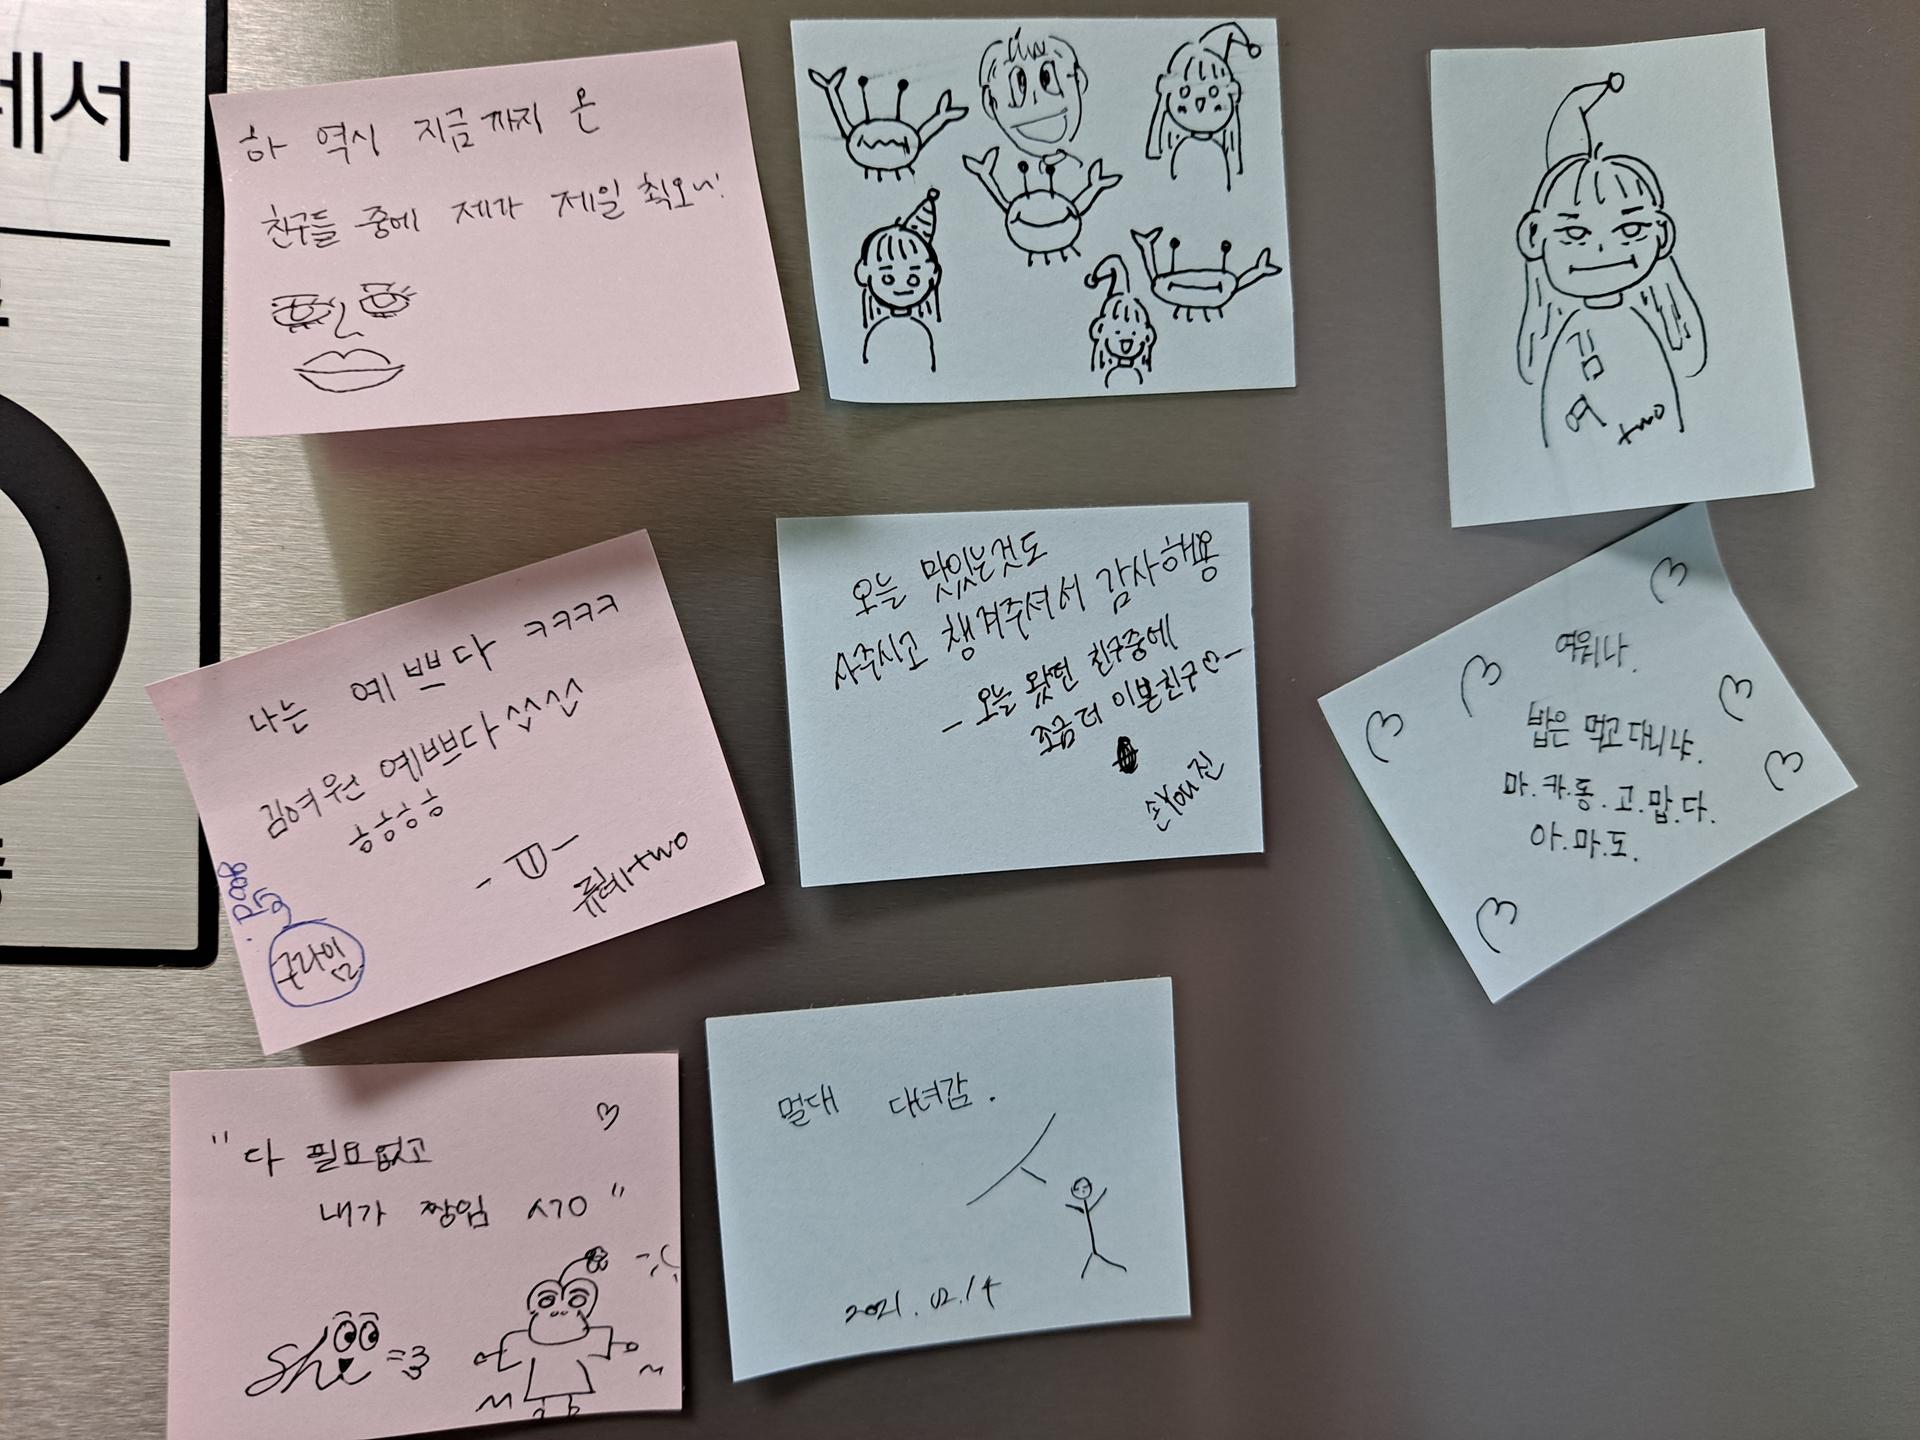 네서
하 역시 지금까지 온
친구들 중에 제가 제일 최오니!
김
여
two
나는 예쁘다 ㅋㅋㅋㅋ
김여원 예쁘다 ㅅㅅㅅ
ㅎㅎㅎㅎ
류혜two
good
구라임
오늘 맛있는것도
사주시고 챙겨주셔서 감사해용
- 오늘 왔던 친구중에
조금 더 이쁜친구♡-
손You진
여워나.
밥은 먹고 다니냐.
마.카.롱.고.맙.다.
아.마.도.
"다 필요없고
내가 짱임 ㅅㄱㅇ"
She =3
멀대 다녀감.
2021.02.14